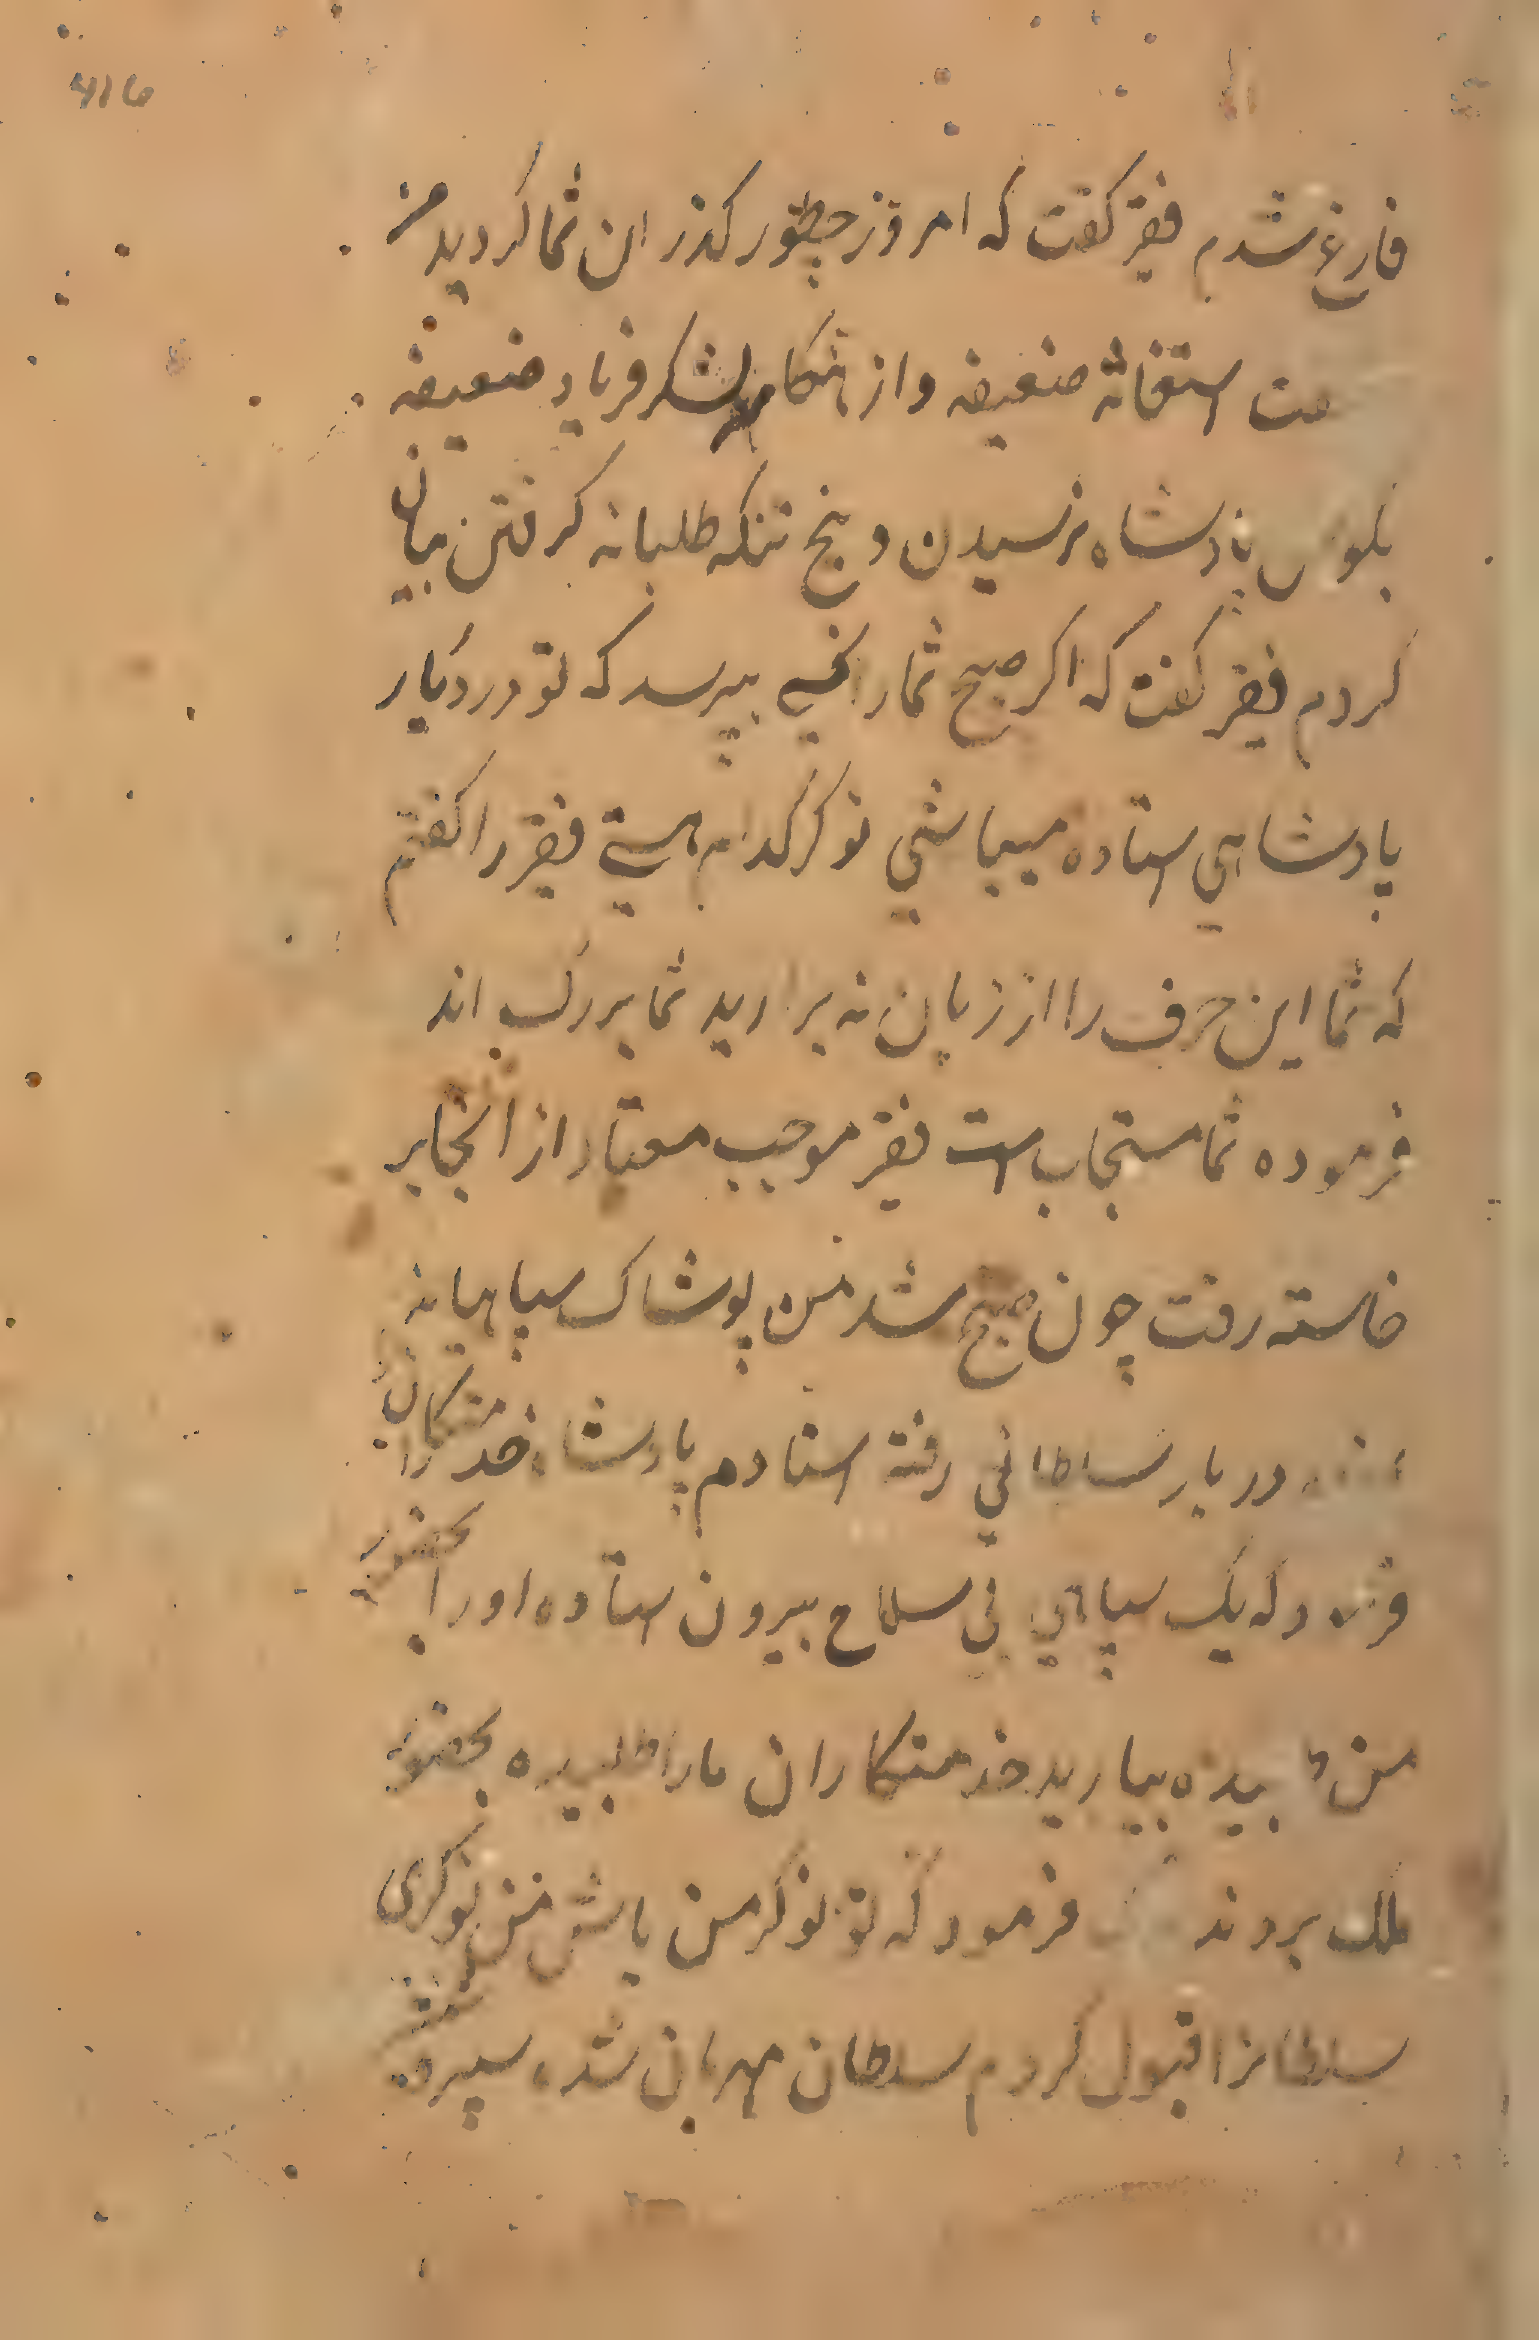 416
فارغ شدم فقیر کفت که امروز چطور کذران شما کردید من
استغاثه ضعیفه و از هنکامه لشکر فریاد ضعیفه
بکوش پادشاه نرسیدن و پنج تنکه طلبانه کرفتن بیان
کردم فقیر کفت که اکر صبح شمارا کسی بپرسد که تو در دربار
پادشاهی استاده میباشی نوکر کدام هستی فقیر را کفتم
که شما این حرف را از زبان نه برارید شما بزرک اند
فرموده شما مستجاب است فقیر موجب معتاد از انجا بر
خاسته رفت چون صبح شد من پوشاک سپاهیانه
در بار سلطانی رفته استادم پادشاه خدمتکاران را
فرمود که یک سپاهی بی سلاح بیرون استاده اورا بحضور
من بیارید خدمتکاران مارا طلبیده بحضور
ملک بردند فرمود که تو نوکر من باش من نوکری
سلطانرا قبول کردم سلطان مهربان شده سپر و